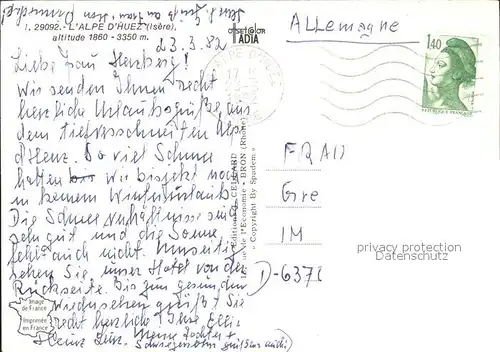 1. 29092. - L'ALPE D'HUEZ (Isère).
altitude 1860 - 3350 m.
23.3.82
Liebe Frau Herzberg!
Wir senden Ihnen recht
herzliche Urlaubsgrüße, aus
dem tiefverschneiten Alpe
d'Huez. So viel Schnee
hatten wir bis jetzt noch
in keinem Winterurlaub
Die Schneeverhältnisse sind
sehr gut und die Sonne
fehlt auch nicht. Umseitig
sehen Sie unser Hotel von der
Rückseite. Bis zum gesunden
Wiedersehen grüßt Sie
recht herzliche Ihre Elli
Heinz
Tochter +
Schwiegersohn
Image
de France
Imprimée
en France
offset color
IADIA
Editions
CELLARD
de l'Economie - BRON (Rhône)
- Copyright By Spadem -
17
Allemagne
1,40
REPUBLIQUE FRANCAISE
FRAU
Gre
IM
D-637
privacy protection
Datenschutz